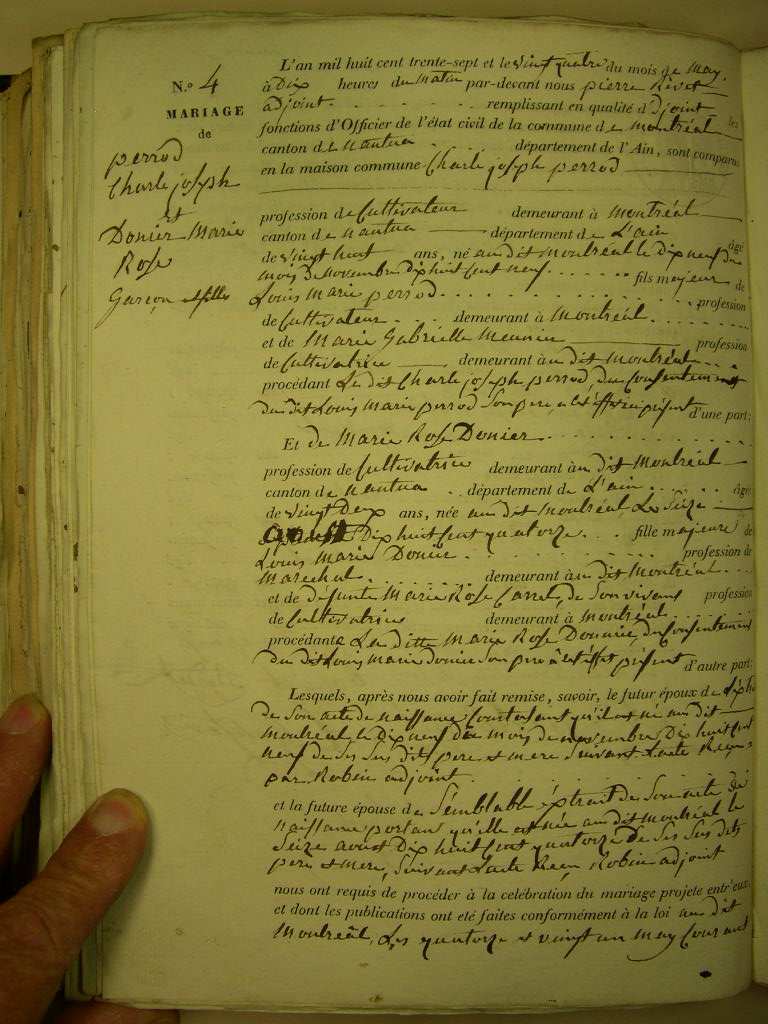 N.º 4
MARIAGE
de
perrod
Charle joseph
et
Donier Marie
Rose
Garçon et fille
L'an mil huit cent trente-sept et le vingt quatre du mois de May,
à Dix heures du Matin par-devant nous pierre
adjoint remplissant en qualité d'adjoint les
fonctions d'Officier de l'état civil de la commune de Montréal
canton de nantua département de l'Ain, sont comparus
en la maison commune Charle joseph perrod
profession de Cultivateur demeurant à Montréal
canton de nantua département de L'ain âgé
de vingt huit ans, né au dit Montréal le Dix neuf du
mois de Novembre dix huit cent neuf fils majeur de
Louis Marie perrod profession
de Cultivateur demeurant à Montréal
et de Marie Gabrielle Meunier profession
de Cultivatrice demeurant à u dit Montréal
procédant Le dit Charle joseph perrod, du Consentement
du dit Louis Marie perrod Son pere, a cet effet présent d'une part;
Et de Marie Rose Donier
profession de Cultivatrice demeurant à u dit Montréal
canton de nantua département de L'ain âgé
de vingt Deux ans, née au dit Montréal Le Seize
Dix huit cent quatorze fille majeure de
Louis Marie Donier profession de
Marechal demeurant à u dit Montréal
et de defunte Marie Rose Carrel, de Son vivant profession
de Cultivatrice demeurant à Montréal
procédante La ditte Marie Rose Donnier, du Consentement
du dit Louis Marie Donier Son pere à cet effet présent d'autre part:
Lesquels, après nous avoir fait remise, savoir, le futur époux de
de Son acte de naissance Constatant qu'il est né au dit
Montréal le Dix neuf du mois de novembre Dix huit cent
neuf de Ses Sus dit pere et mere Suivant L'acte Reçu
par Robin adjoint
et la future épouse de Semblable éxtrait de Son acte de
naissance portant qu'elle est née au dit Montréal le
Seize aoust Dix huit cent quatorze de Ses Sus dits
pere et mere, Suivant L'acte Reçu Robin adjoint
nous ont requis de procéder à la celébration du mariage projete entr'eux
et dont les publications ont eté faites conformément à la loi au dit
Montréal, Les quatorze et vingt un May Courant